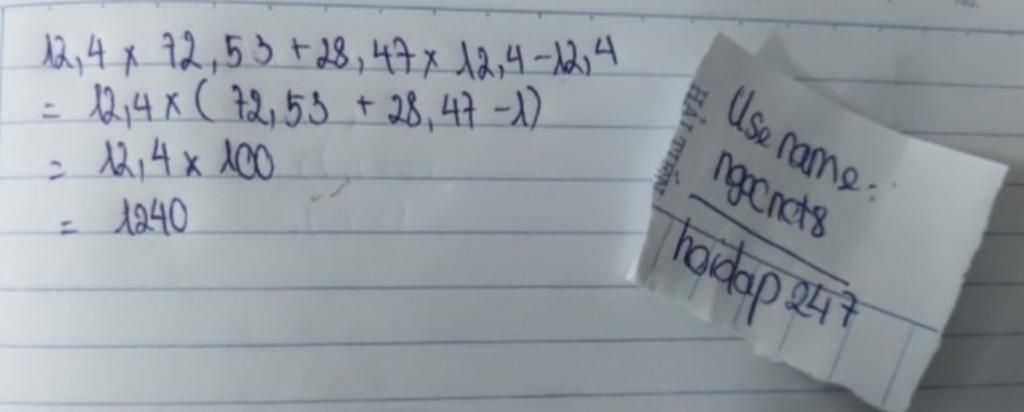 12,4 x 72,53 + 28,47 x 12,4 - 12,4
= 12,4 x ( 72,53 + 28,47 - 1)
= 12,4 x 100
= 1240
Use name:
ngcnct8
hoidap 247